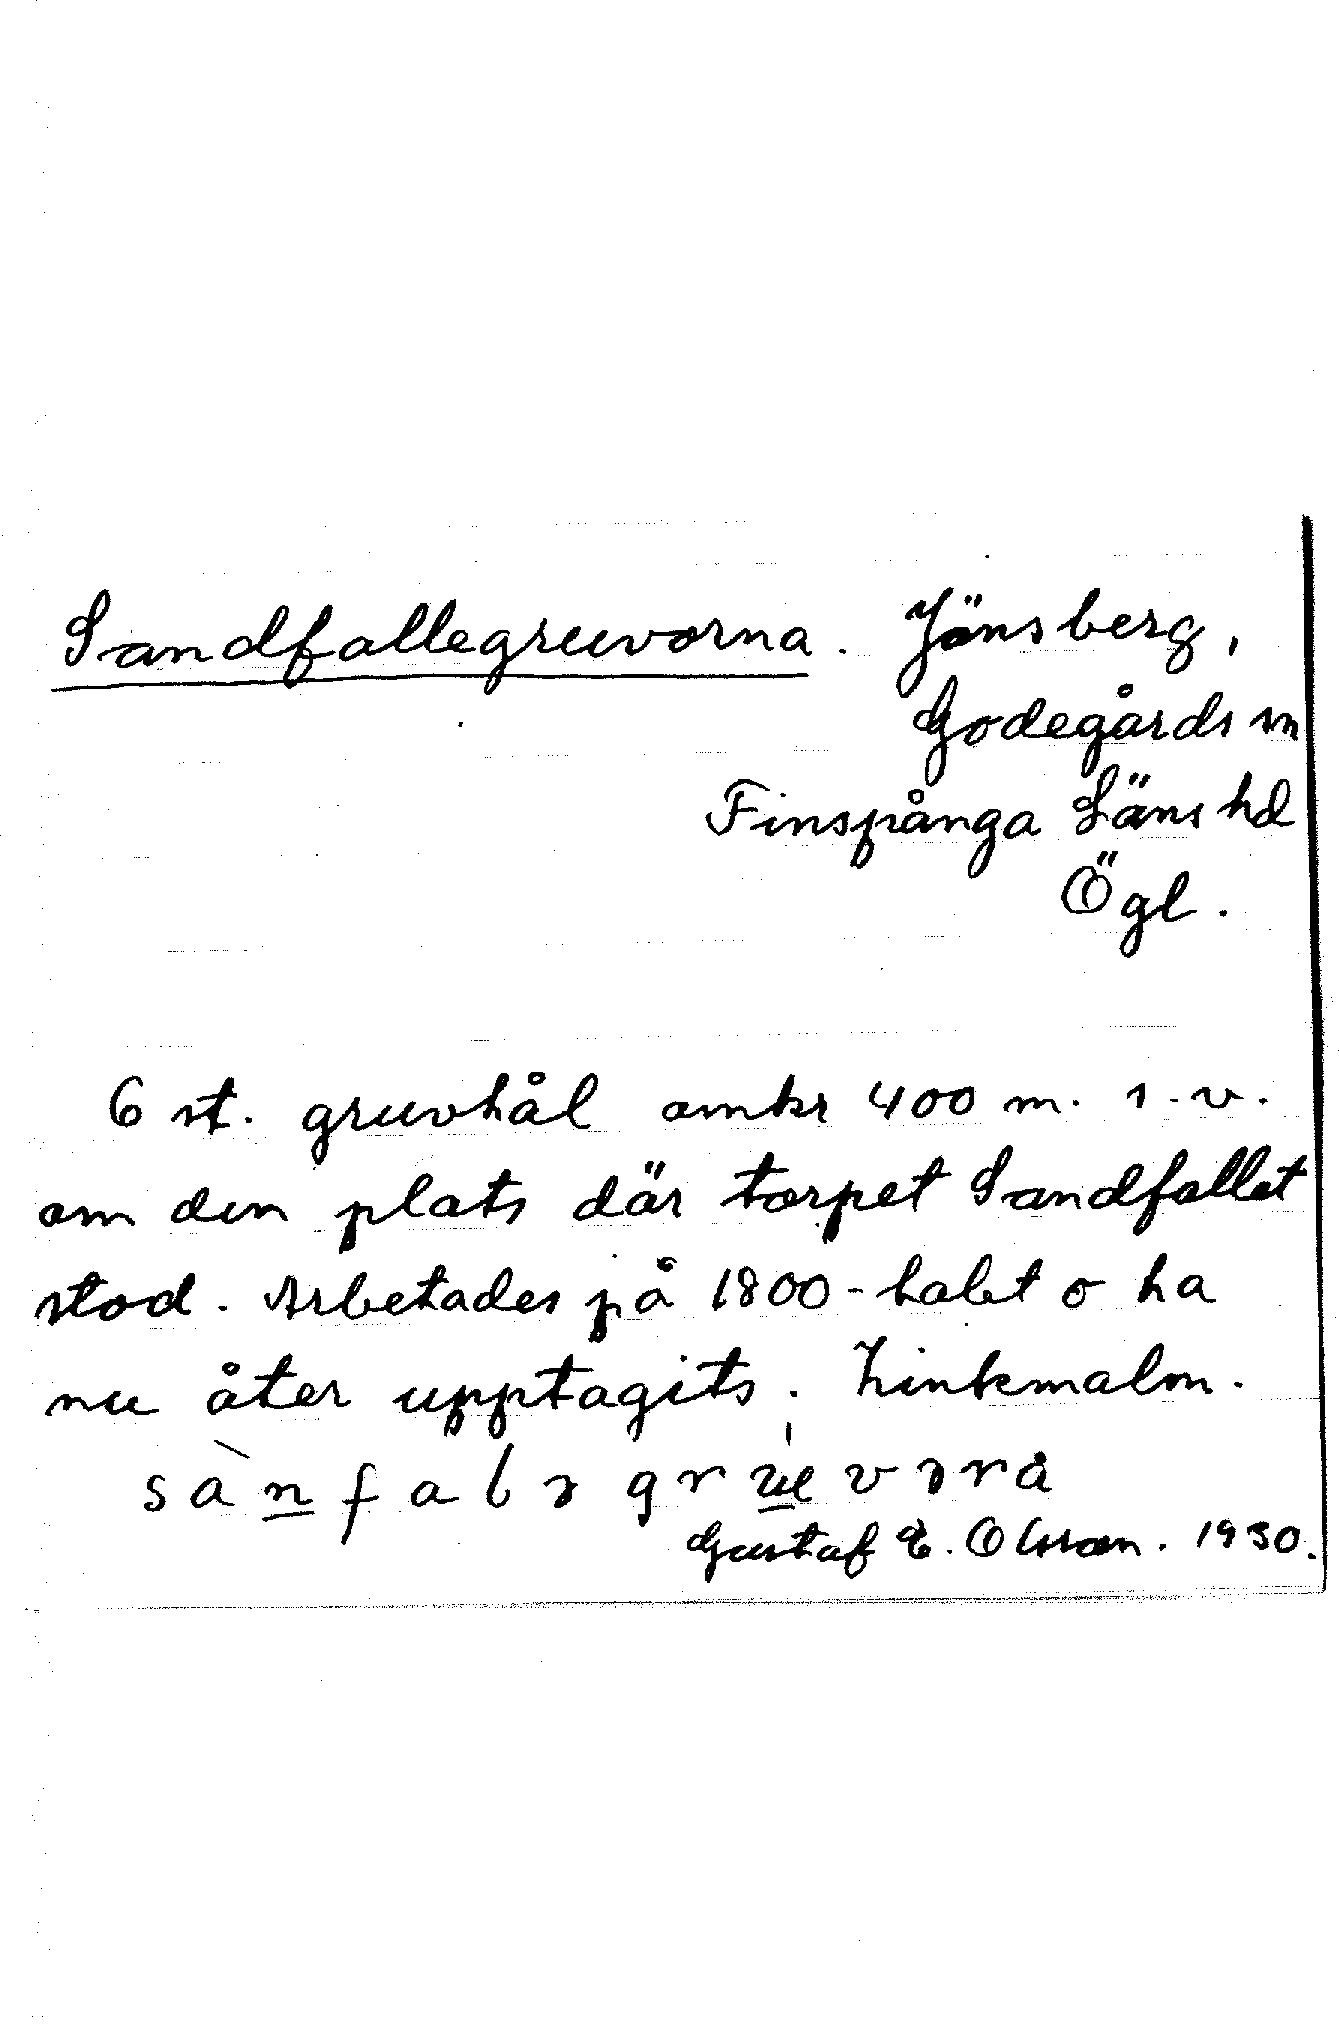 Sandfallegruvorna. Jönsberg,
Godegårds sn
Finspånga Läns hd
Ögl.
6 st. gruvhål omkr 400 m. s.v.
om den plats där torpet Sandfallet
stod. Arbetades på 1800-halvt o ha
nu åter upptagits. Zinkmalm.
Gustaf E. Olsson. 1930.